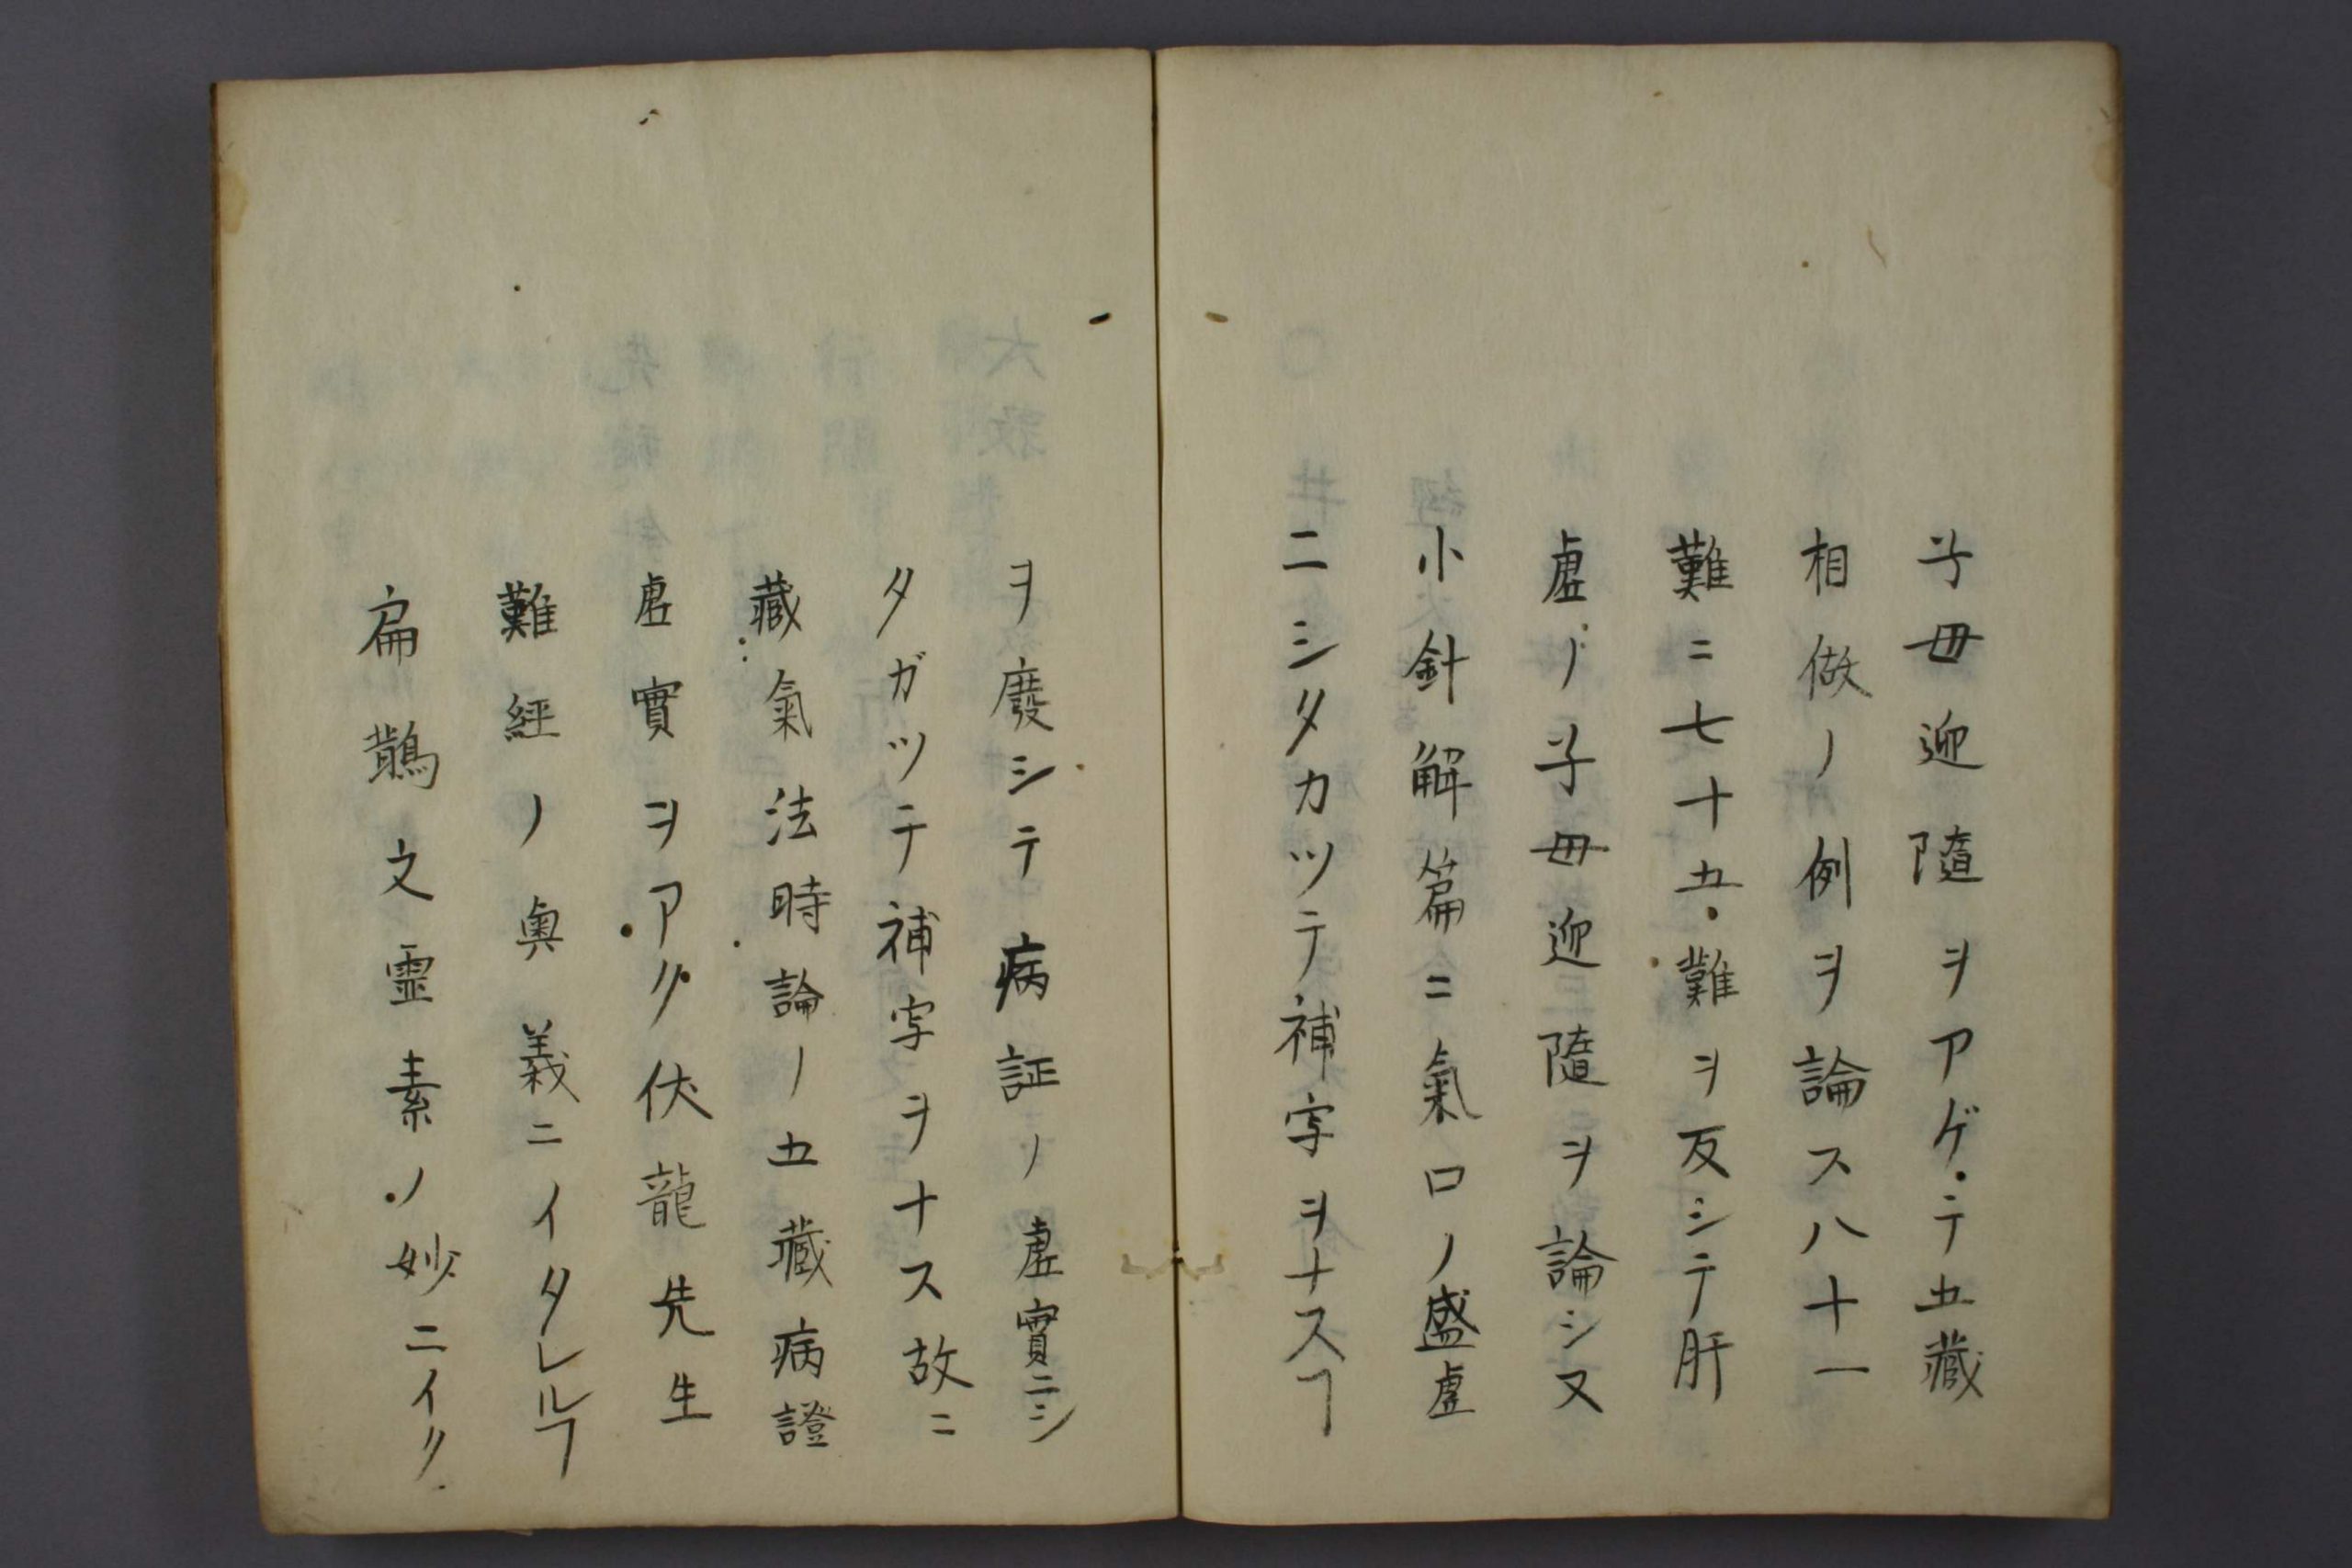 子毋迎隨ヲアゲテ五藏
相倣ノ例ヲ論ス八十一
難ニ七十五難ヲ反シテ肝
虚ノ子毋迎隨ヲ論シ又
小針解篇ニ氣口ノ盛虚
ニシタカツテ補写ヲナスヿ
ヲ廢シテ病証ノ虚實ニシ
タガツテ補写ヲナス故ニ
藏氣法時論ノ五藏病證
虚實ヲアク伏龍先生
難経ノ奥義ニイタレルヿ
扁鵲文霊素ノ妙ニイク